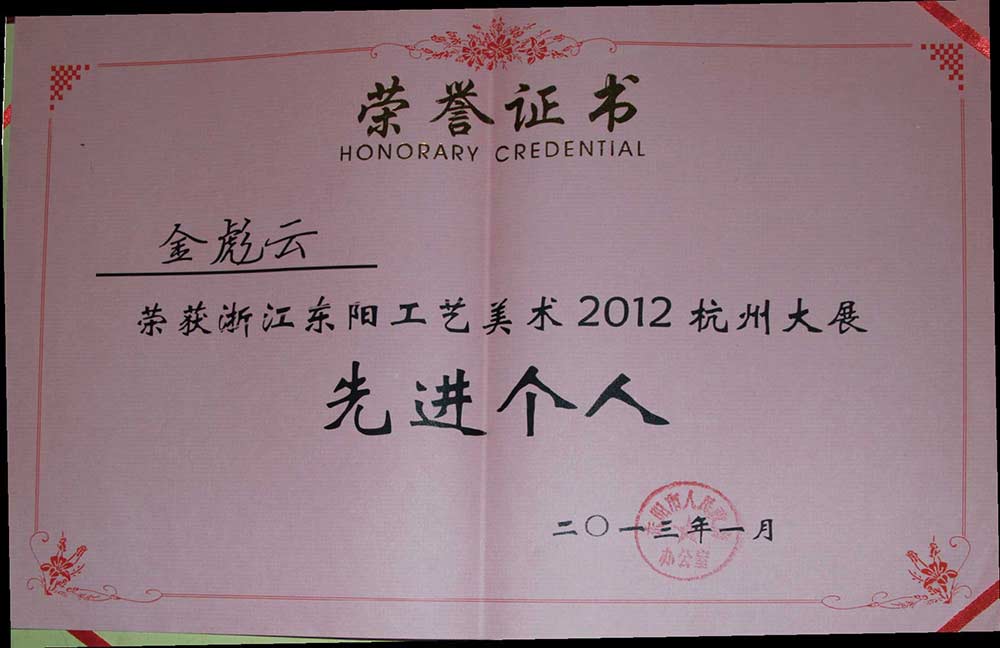 荣誉证书
HONORARY CREDENTIAL
金彪云
荣获浙江东阳工艺美术2012杭州大展
先进个人
二〇一三年一月
东阳市人民政府
办公室